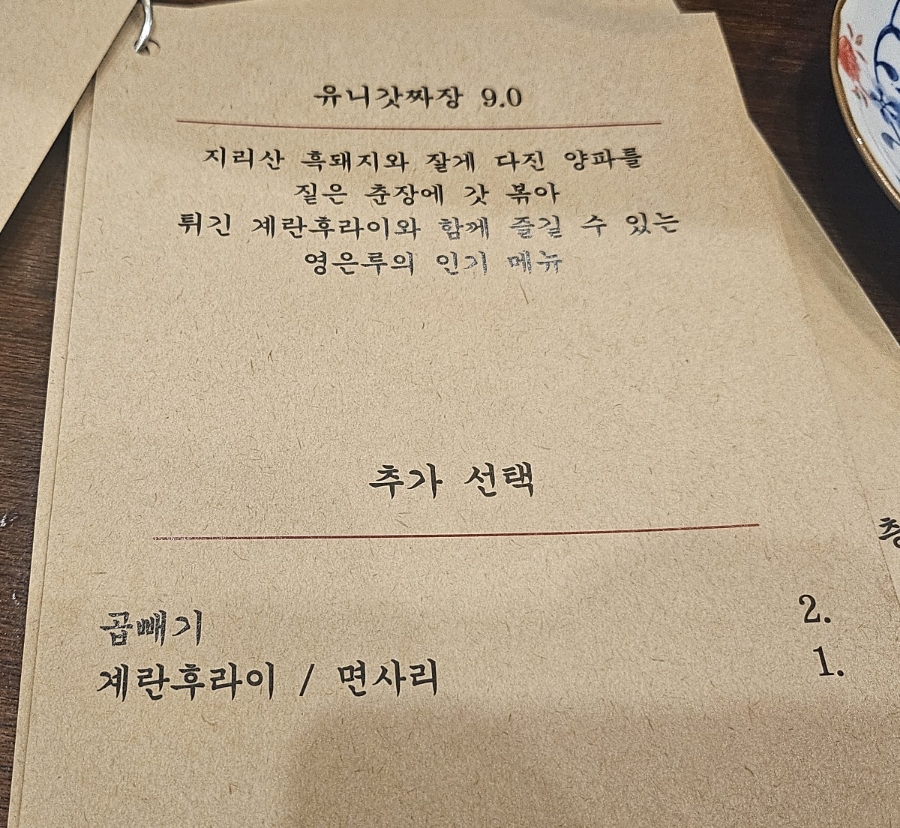 유니갓짜장 9.0
지리산 흑돼지와 잘게 다진 양파를
짙은 춘장에 갓 볶아
튀긴 계란후라이와 함께 즐길 수 있는
영은루의 인기 메뉴
추가 선택
곱빼기 2.
계란후라이 / 면사리 1.